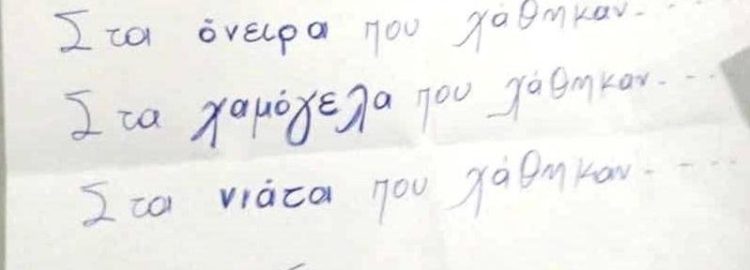 Στα όνειρα που χάθηκαν....
Στα χαμόγελα που χάθηκαν....
Στα νιάτα που χάθηκαν....